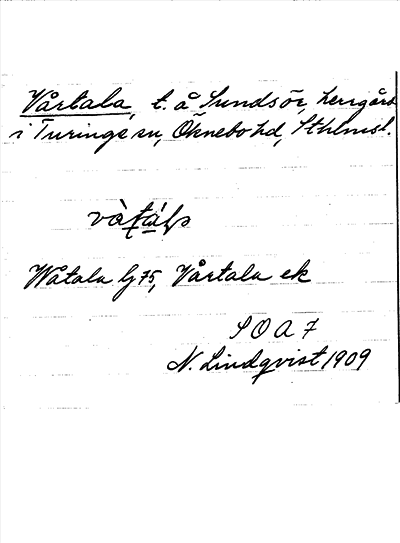 Vårtala, t. å Sundsör, herrgård
i Turinge sn, Öknebo hd, Sthlmsl.
Wåtala Gj 75, Vårtala ek
S O A 7
N. Lindqvist 1909